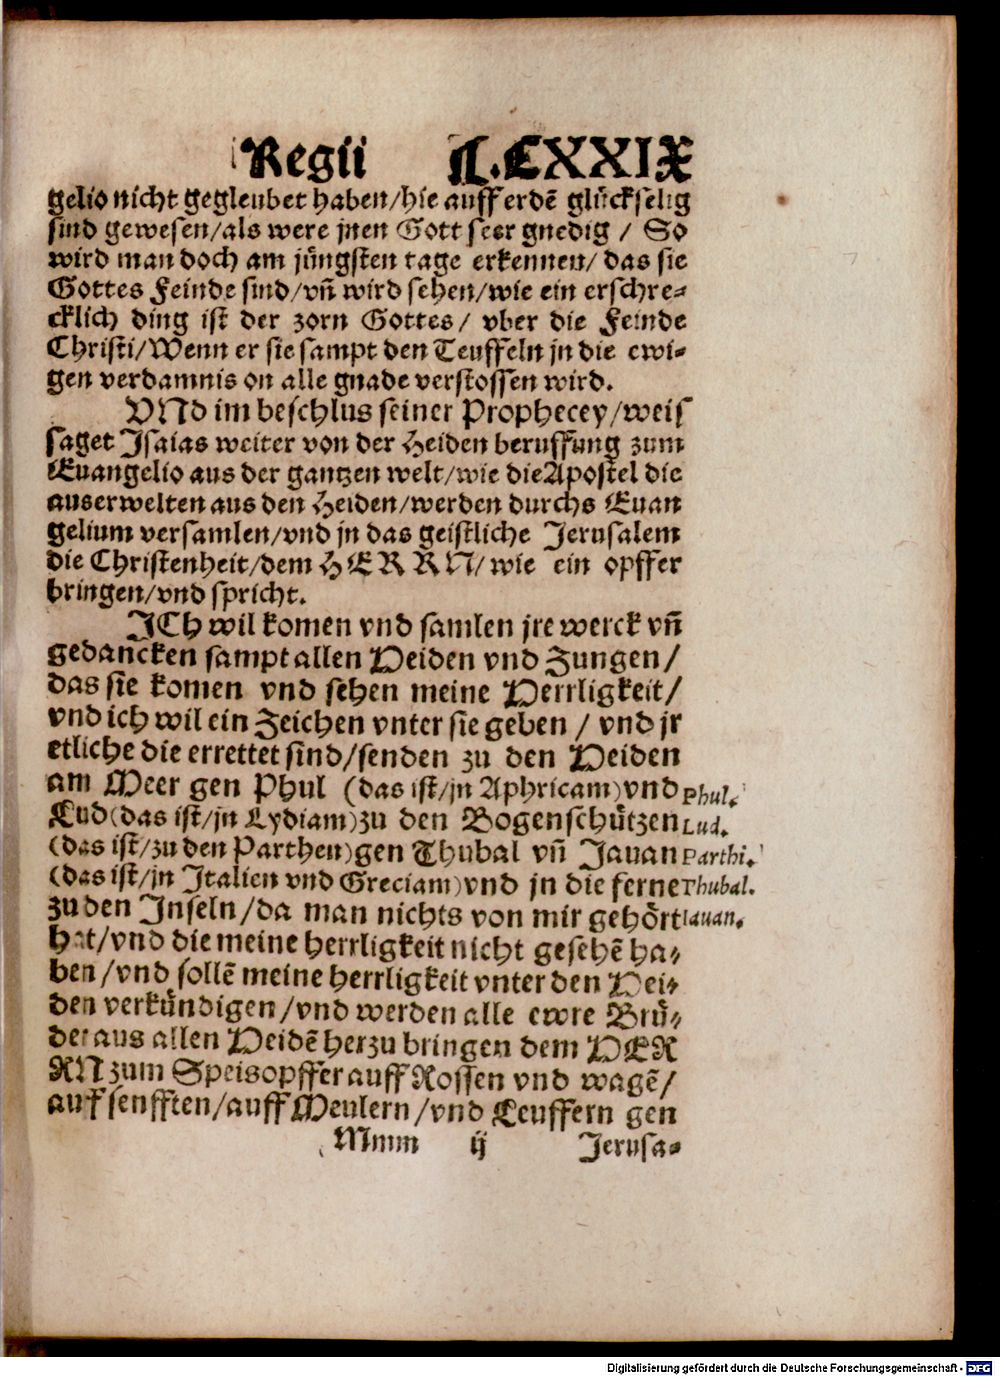 Regii CCXXIX
gelio nicht gegleubet haben/hie auff erdē glückselig
sind gewesen/als were jnen Gott seer gnedig / So
wird man doch am jüngsten tage erkennen/ das sie
Gottes Feinde sind/vñ wird sehen/wie ein erschre⸗
cklich ding ist der zorn Gottes/ vber die Feinde
Christi/Wenn er sie sampt den Teuffeln jn die ewi⸗
gen verdamnis on alle gnade verstossen wird.
VNd im beschlus seiner Prophecey/weis
saget Isaias weiter von der Heiden beruffung zum
Euangelio aus der gantzen welt/wie die Apostel die
auserwelten aus den Heiden/werden durchs Euan
gelium versamlen/vnd jn das geistliche Jerusalem
die Christenheit/dem HERRN/ wie ein opffer
bringen/vnd spricht.
ICh wil komen vnd samlen jre werck vñ
gedancken sampt allen Heiden vnd Zungen/
das sie komen vnd sehen meine Herrligkeit/
vnd ich wil ein Zeichen vnter sie geben / vnd jr
etliche die errettet sind/senden zu den Heiden
am Meer gen Phul (das ist/jn Aphricam)vnd Phul.
Lud(das ist/jn Lydiam)zu den Bogenschützen Lud.
(das ist/zu den Parthen)gen Thubal vñ Jauan Parthi.
(das ist/jn Italien vnd Greciam)vnd jn die ferne Thubal.
zu den Inseln/da man nichts von mir gehört Iauan.
hat/vnd die meine herrligkeit nicht gesehē ha⸗
ben/vnd sollē meine herrligkeit vnter den Hei⸗
den verkündigen/vnd werden alle ewre Brü⸗
der aus allen Heidē herzu bringen dem HER
RN zum Speisopffer auff Rossen vnd wagē/
auff senfften/auff Meulern/vnd Leuffern gen
Mmm ij Jerusa⸗
Digitalisierung gefördert durch die Deutsche Forschungsgemeinschaft - DFG